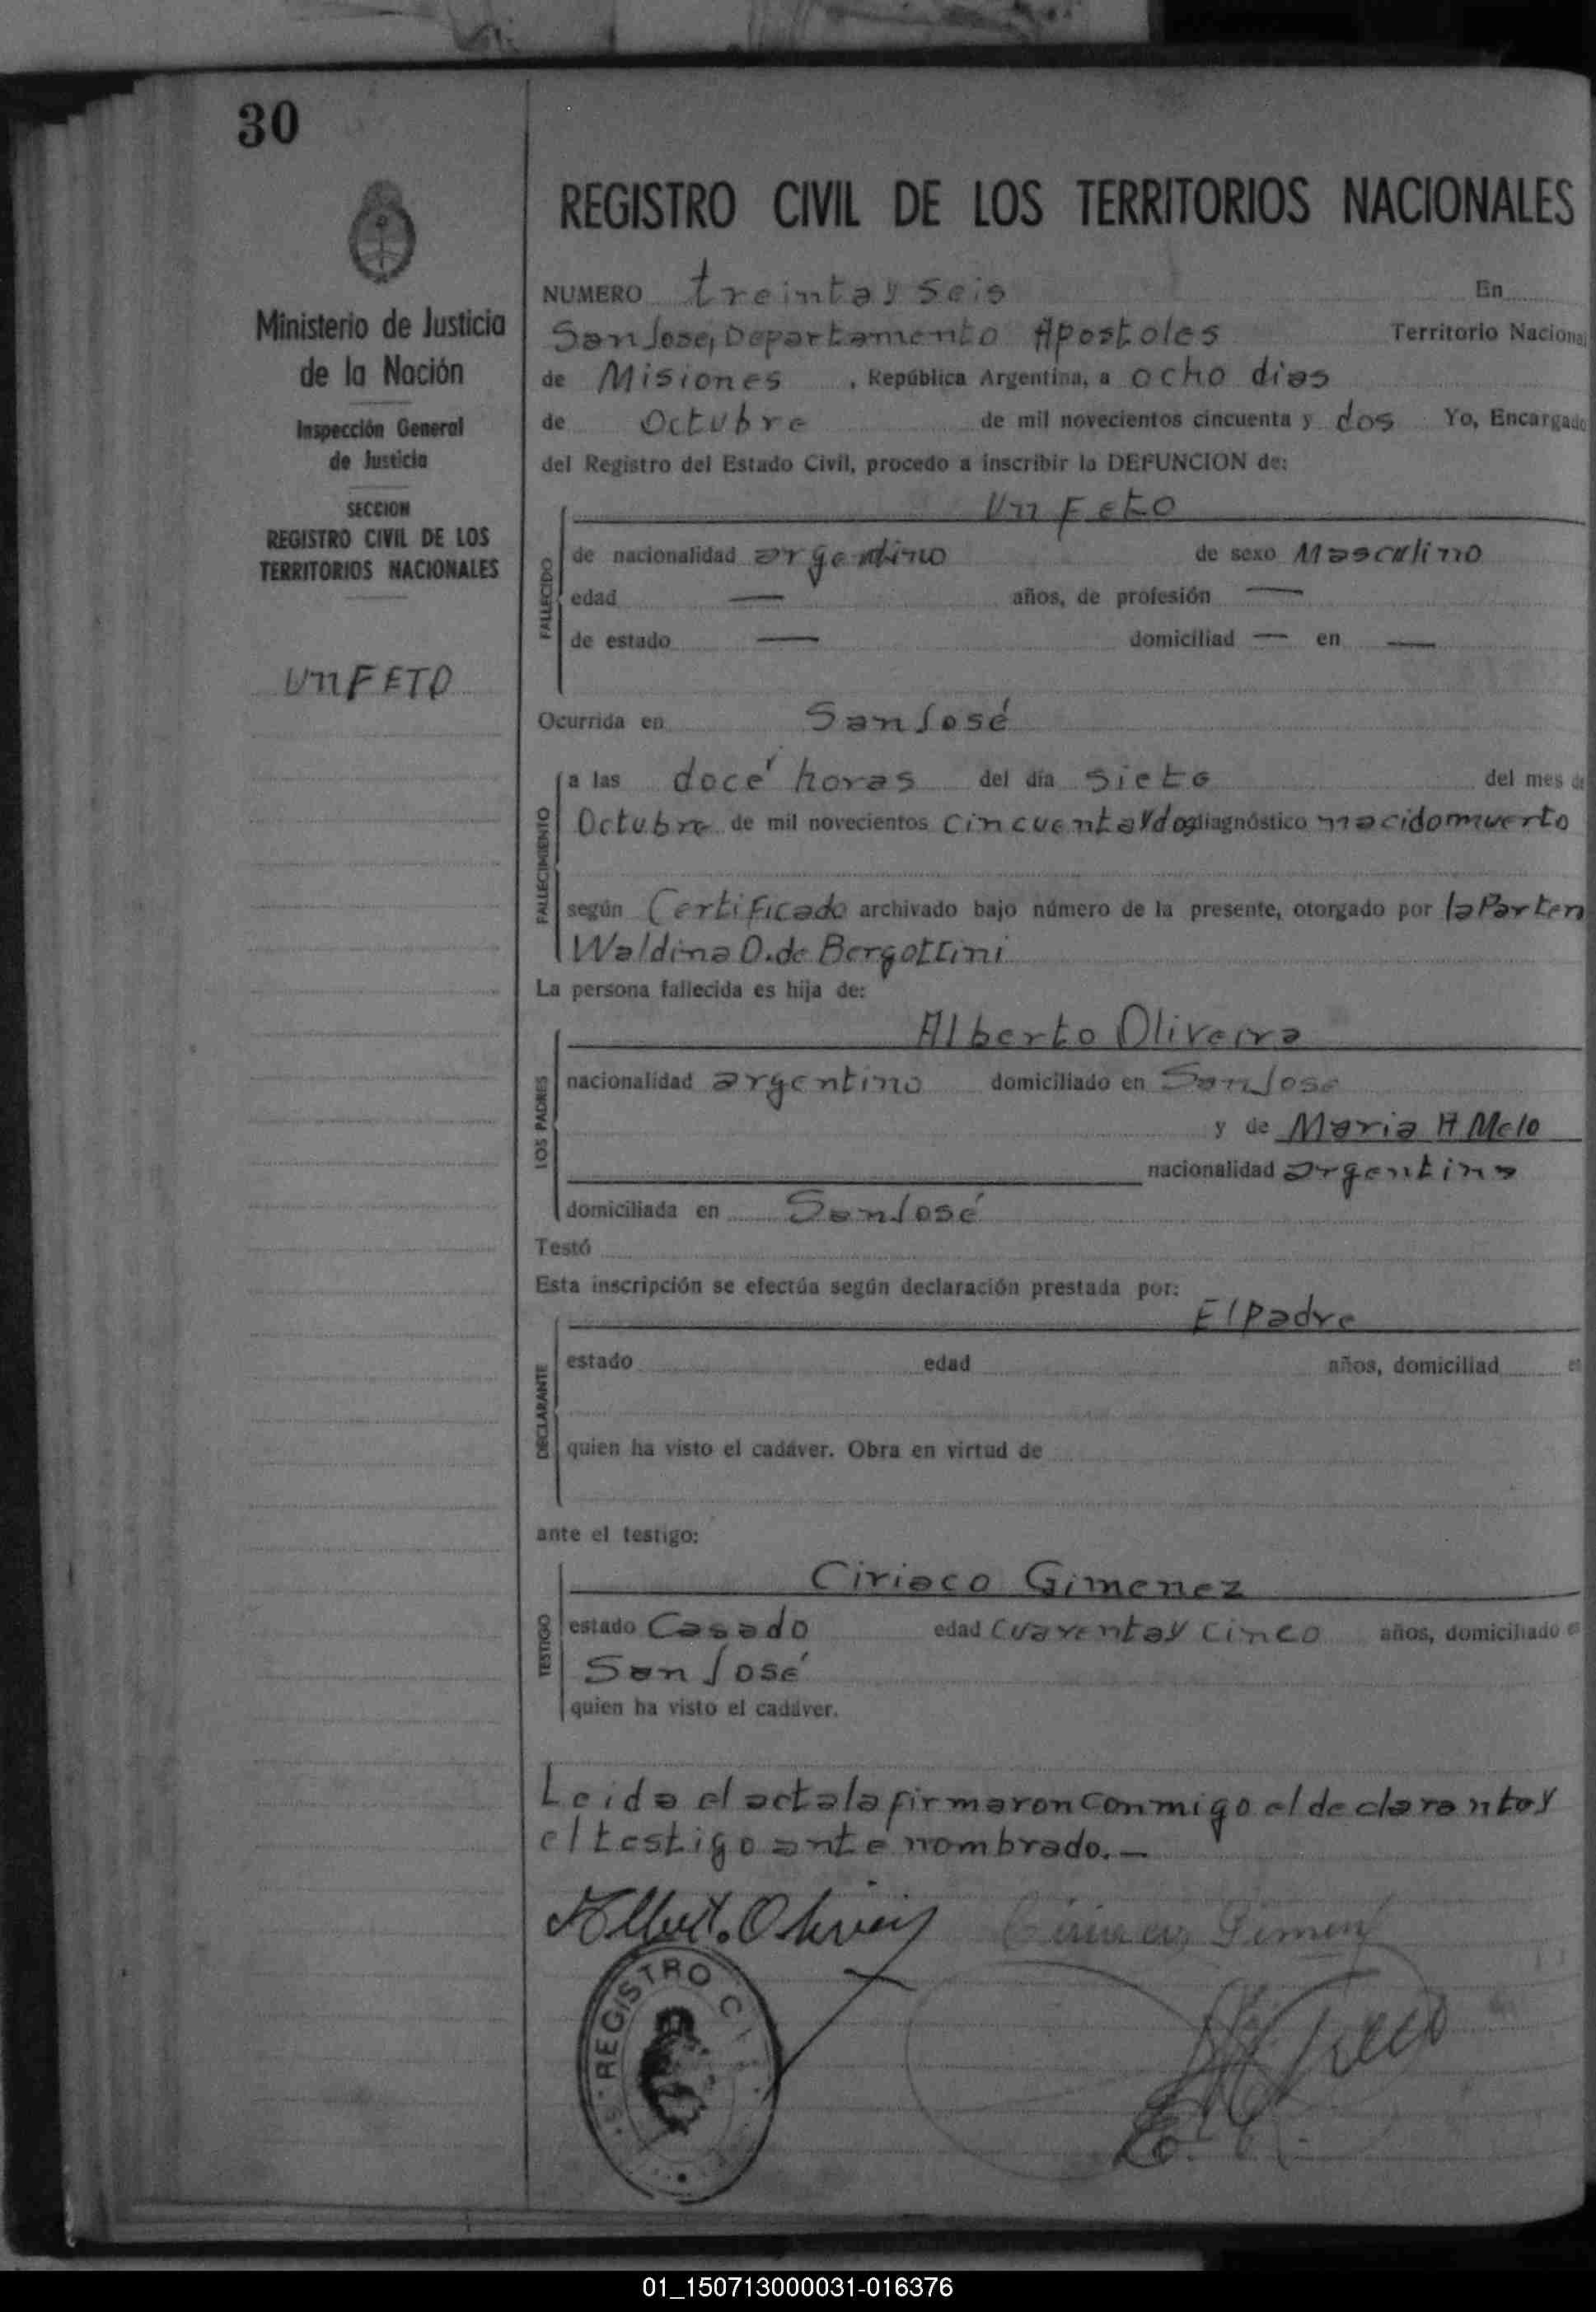 30
REGISTRO CIVIL DE LOS TERRITORIOS NACIONALES
Ministerio de Justicia
de la Nación
Inspección General
de Justicia
SECCION
REGISTRO CIVIL DE LOS
TERRITORIOS NACIONALES
Un FETO
NUMERO treinta y seis En
San Jose, Departamento Apostoles Territorio Nacional
de Misiones, República Argentina, a ocho dias
de Octubre de mil novecientos cincuenta y dos Yo, Encargado
del Registro del Estado Civil, procedo a inscribir la DEFUNCION de:
Un Feto
FALLECIDO
de nacionalidad argentino de sexo Masculino
edad — años, de profesión —
de estado — domiciliad — en —
Ocurrida en San José
FALLECIMIENTO
a las doce horas del día siete del mes de
Octubre de mil novecientos cincuenta y dos diagnóstico nacido muerto
según Certificado archivado bajo número de la presente, otorgado por la Parten
Waldina O. de Bergottini
La persona fallecida es hija de:
LOS PADRES
Alberto Oliveira
nacionalidad argentino domiciliado en San Jose
y de Maria H Melo
nacionalidad argentina
domiciliada en San José
Testó
Esta inscripción se efectúa según declaración prestada por:
DECLARANTE
El padre
estado edad años, domiciliad en
quien ha visto el cadáver. Obra en virtud de
ante el testigo:
TESTIGO
Ciriaco Gimenez
estado Casado edad Cuarenta y Cinco años, domiciliado en
San José
quien ha visto el cadáver.
Leida el acta la firmaron conmigo el declarante y
el testigo ante nombrado.—
Albert. Oliveira
REGISTRO CI
01_150713000031-016376